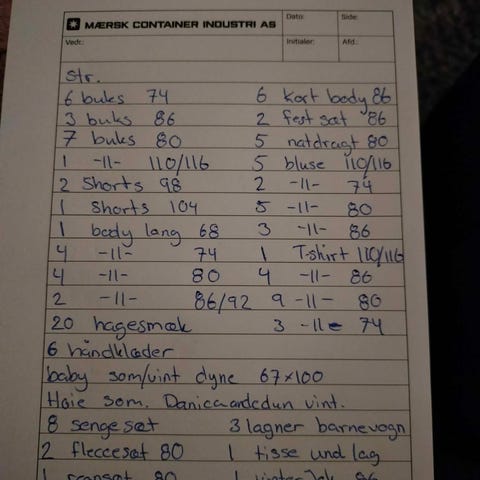 MÆRSK CONTAINER INDUSTRI AS
Dato: Side:
Vedr.: Initialer: Afd.:
Str.
6 buks 74 6 kort body 86
3 buks 86 2 fest sæt 86
7 buks 80 5 natdragt 80
1 -11- 110/116 5 bluse 110/116
2 Shorts 98 2 -11- 74
1 Shorts 104 5 -11- 80
1 body lang 68 3 -11- 86
4 -11- 74 1 T-shirt 110/116
4 -11- 80 4 -11- 86
2 -11- 86/92 9 -11- 80
20 hagesmæk 3 -11- 74
6 håndklæder
baby som/vint dyne 67x100
Høie som. Danica andedun vint.
8 sengesæt 3 lagner barnevogn
2 fleecesæt 80 1 tisse und lag
1 80 1 86